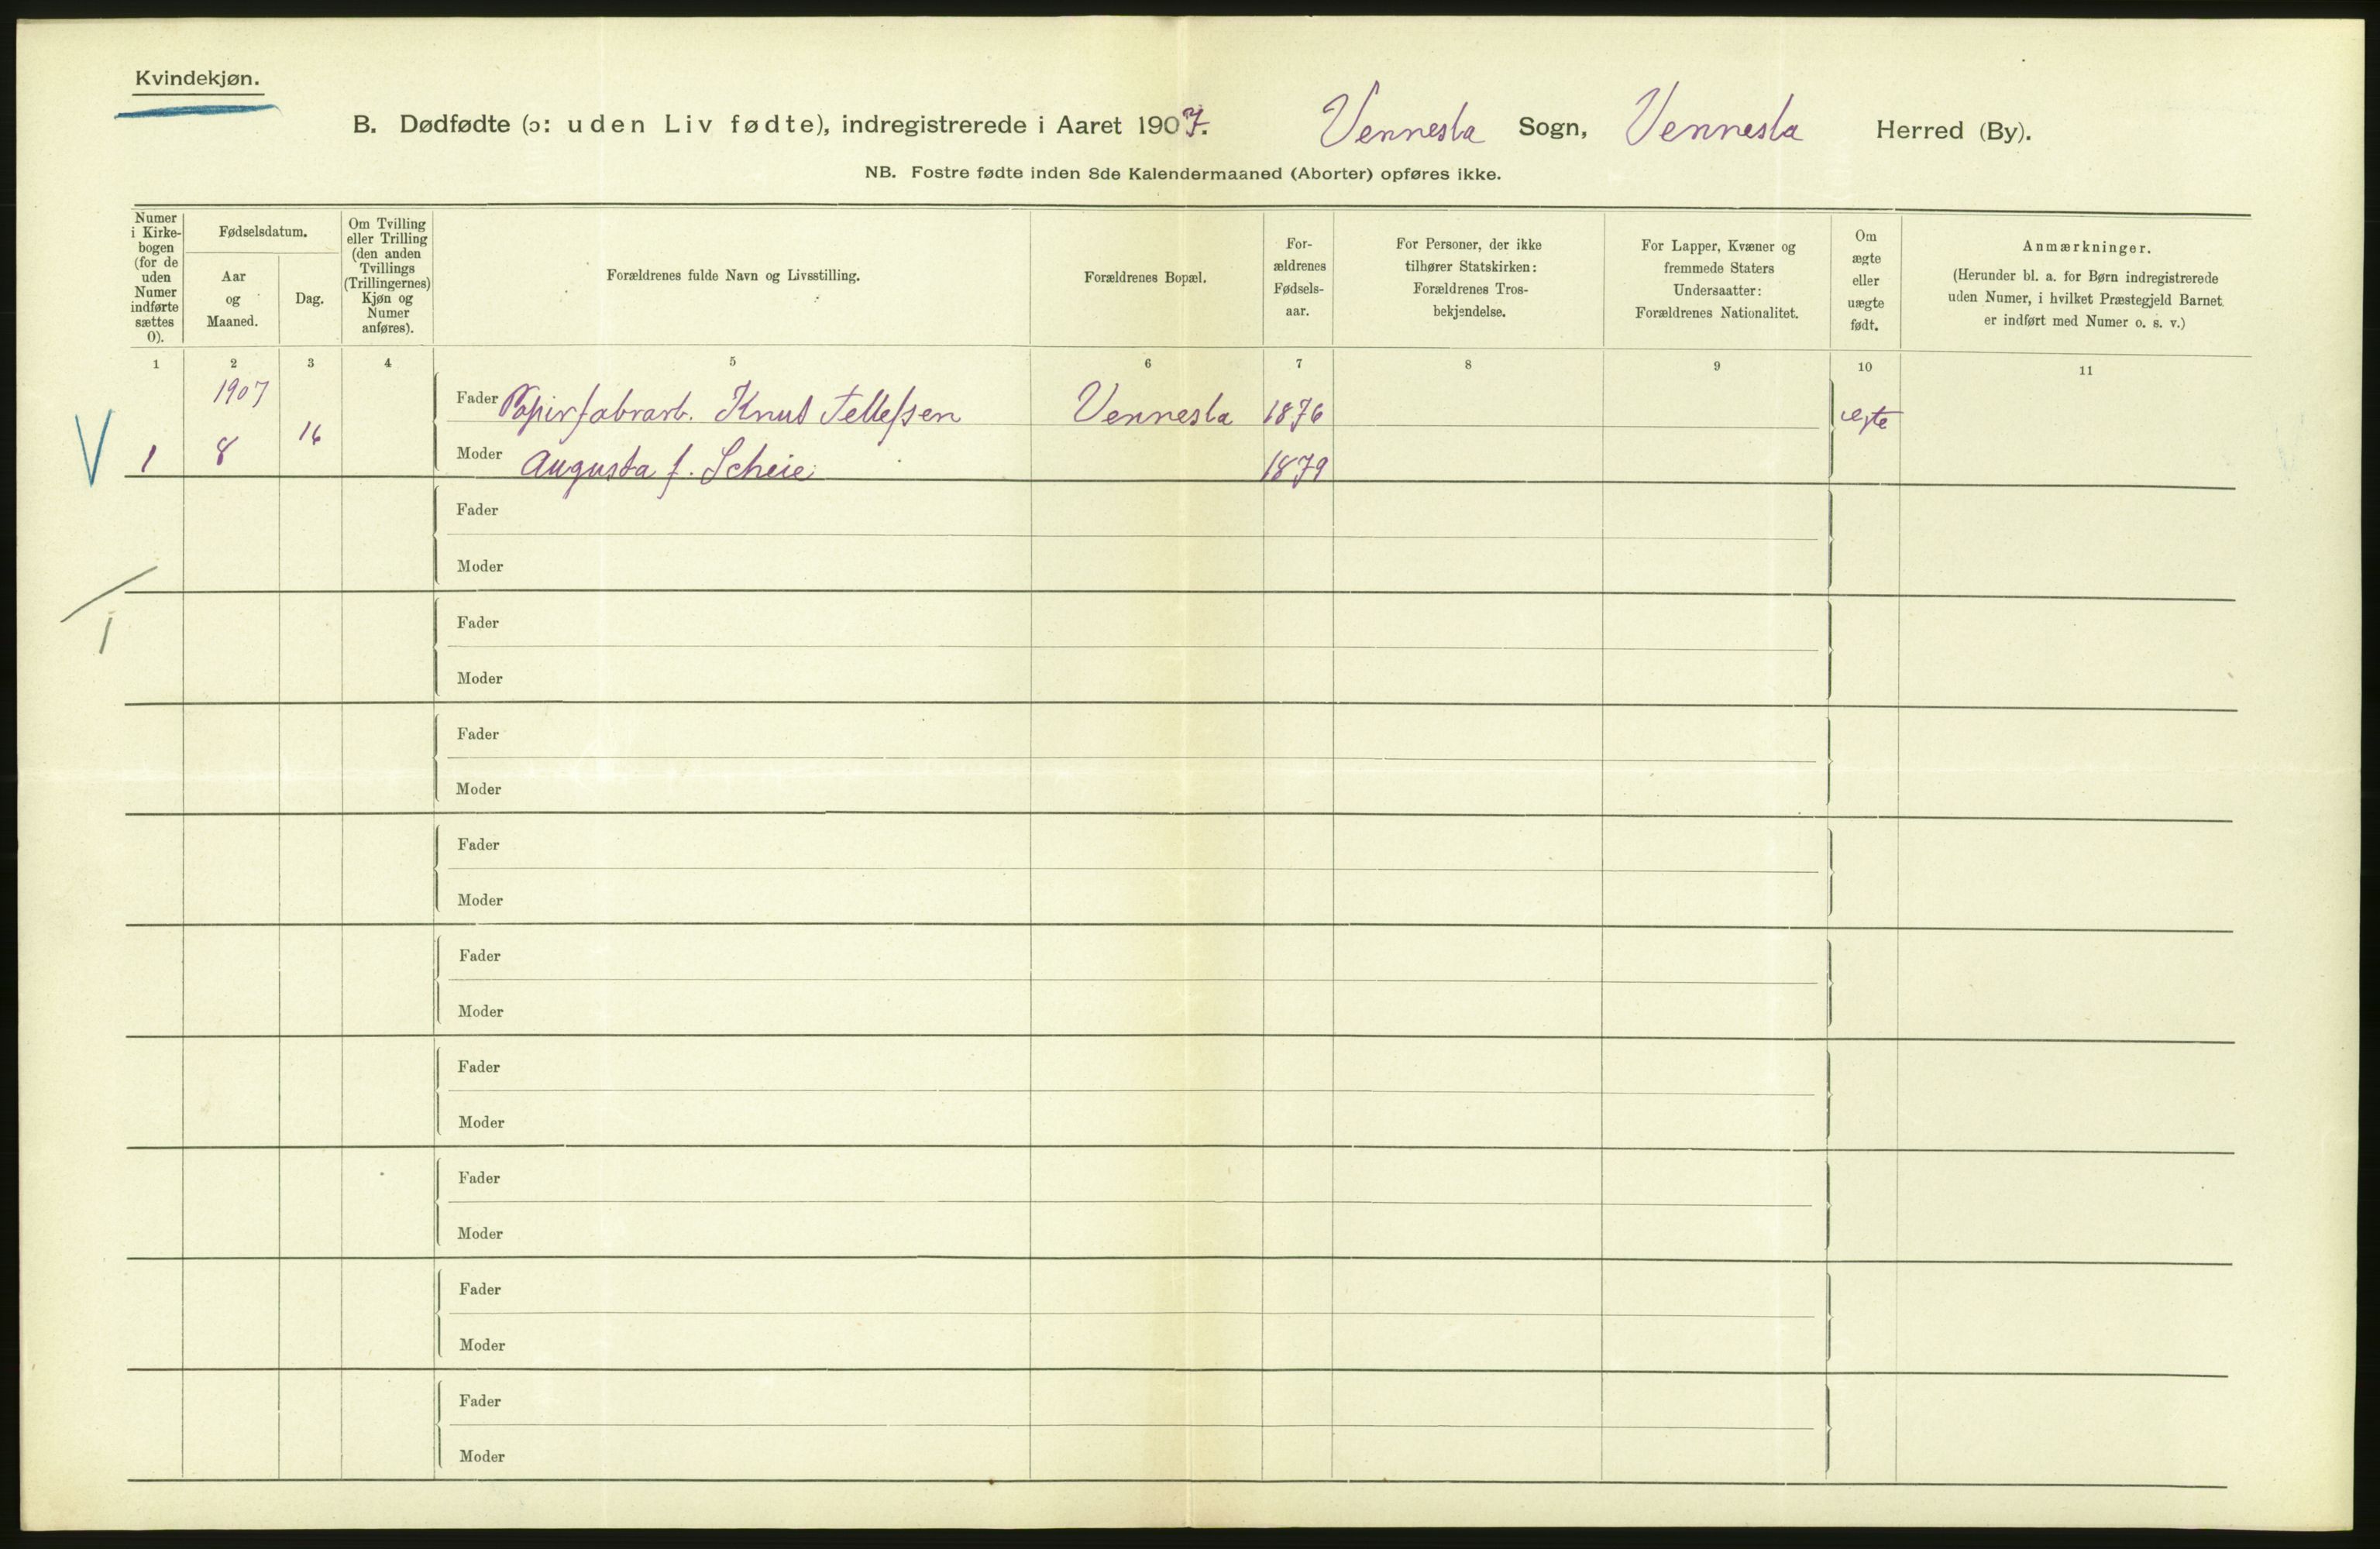 Kvindekjøn.
B. Dødfødte (ɔ: uden Liv fødte), indregistrerede i Aaret 1907. Vennesla Sogn, Vennesla Herred (By).
NB. Fostre fødte inden 8de Kalendermaaned (Aborter) opføres ikke.
Numer i Kirke-bogen (for de uden Numer indførte sættes 0).
Fødselsdatum.
Aar og Maaned.
Dag.
Om Tvilling eller Trilling (den anden Tvillings (Trillingernes) Kjøn og Numer anføres).
Forældrenes fulde Navn og Livsstilling.
Forældrenes Bopæl.
For-ældrenes Fødsels-aar.
For Personer, der ikke tilhører Statskirken: Forældrenes Tros-bekjendelse.
For Lapper, Kvæner og fremmede Staters Undersaatter: Forældrenes Nationalitet.
Om ægte eller uægte født.
Anmærkninger.
(Herunder bl. a. for Børn indregistrerede uden Numer, i hvilket Præstegjeld Barnet er indført med Numer o. s. v.)
1 2 3 4 5 6 7 8 9 10 11
1907
Fader Papirfabrarb. Knut Tellefsen Vennesla 1876 ægte
V 1 8 16
Moder Augusta f. Scheie 1879
Fader
Moder
1
Fader
Moder
Fader
Moder
Fader
Moder
Fader
Moder
Fader
Moder
Fader
Moder
Fader
Moder
Fader
Moder